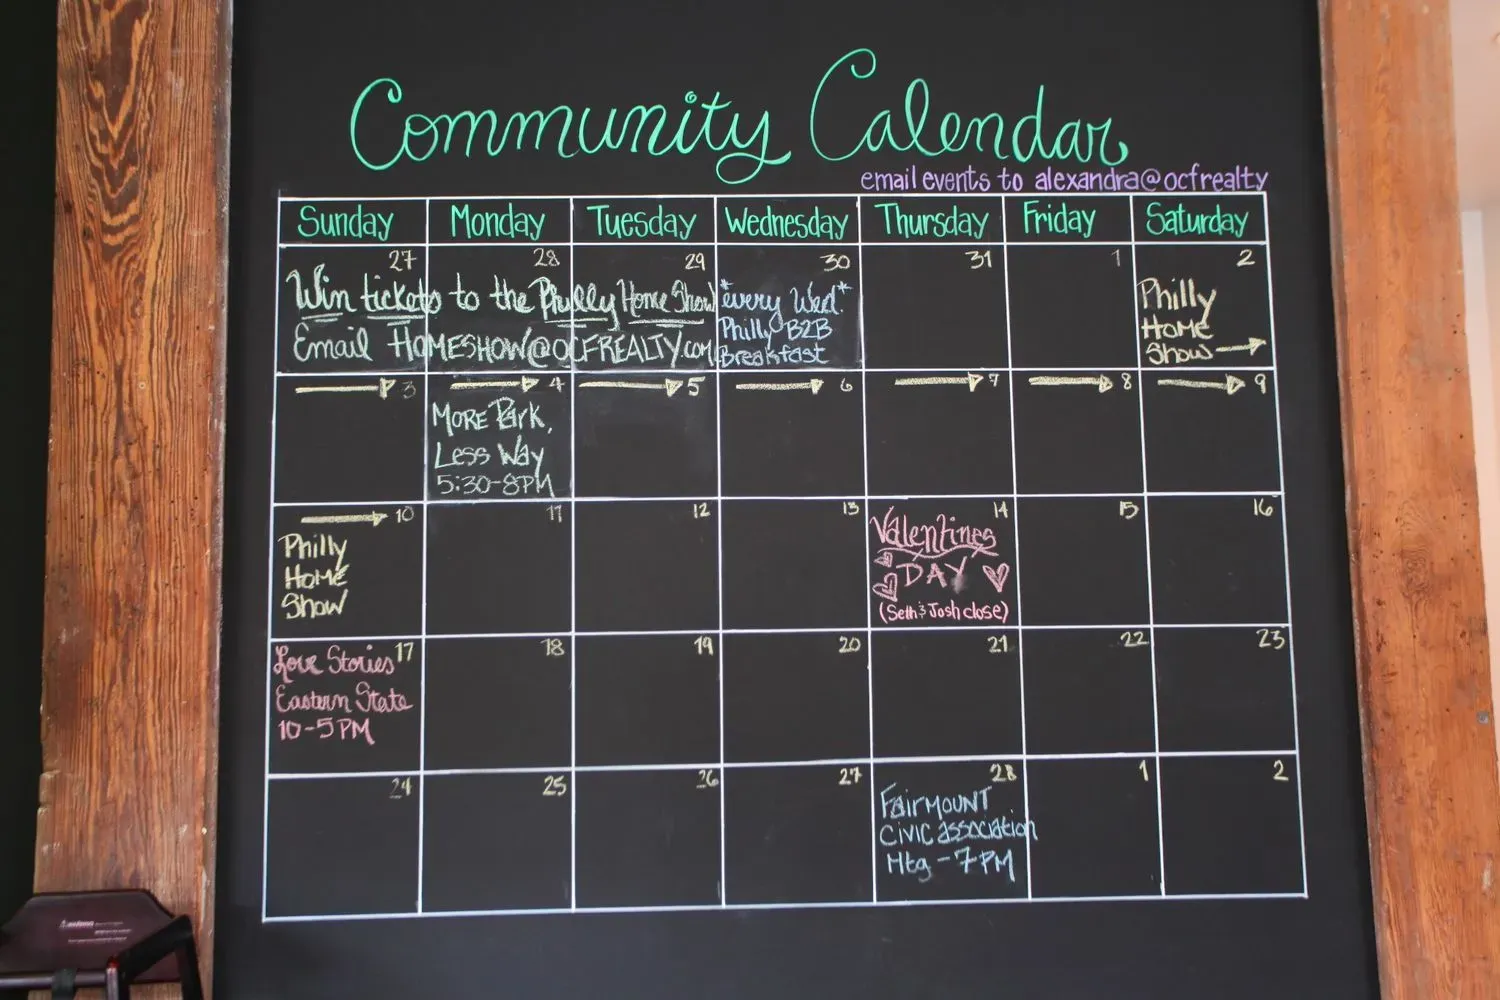 Community Calendar
email events to alexandra@ocfrealty
Sunday Monday Tuesday Wednesday Thursday Friday Saturday
27 28 29 30 31 1 2
Win tickets to the Philly Home Show
Email HOMESHOW@OCFREALTY.com
*every Wed.*
Philly B2B
Breakfast
Philly
HOME
Show
3 4 5 6 7 8 9
MORE Park,
Less Way
5:30-8PM
10 11 12 13 14 15 16
Philly
HOME
Show
Valentines
DAY
(Seth & Josh close)
17 18 19 20 21 22 23
Love Stories
Eastern State
10-5PM
24 25 26 27 28 1 2
FAIRMOUNT
CIVIC association
Mtg - 7PM